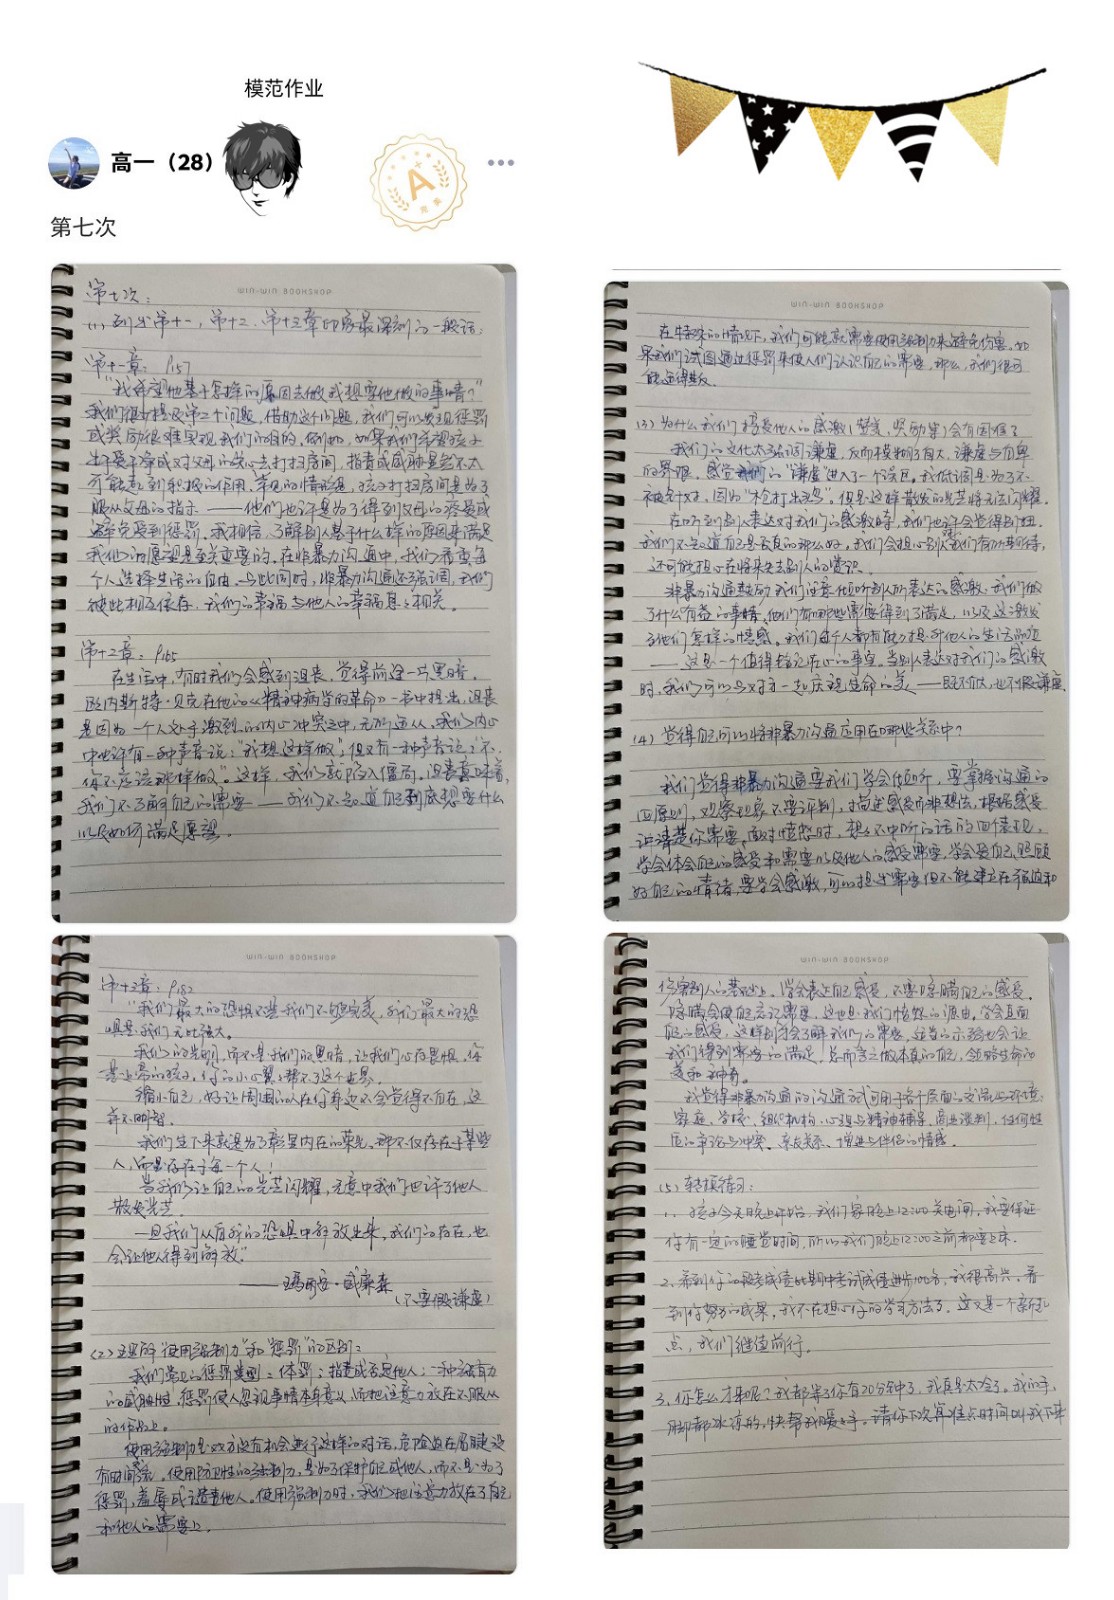 模范作业
高一（28）
A
完美
第七次
WIN-WIN BOOKSHOP
第七次：
(1) 列出第十一，第十二、第十三章印象最深刻的一般话：
第十一章：P157
“我希望他基于怎样的原因去做我想要他做的事情？”
我们很少提及第二个问题，借助这个问题，我们可以发现惩罚
或奖励很难实现我们的目的，例如，如果我们希望孩子
出于爱干净或对父母的关心去打扫房间，指责或威胁是会不太
可能起到积极的作用，常见的情形是，孩子打扫房间是为了
服从父母的指示 —— 他们也许是为了得到父母的疼爱或
避免受到惩罚。我相信，了解别人基于什么样的原因来满足
我们的愿望是至关重要的。在非暴力沟通中，我们尊重每
个人选择生活的自由，与此同时，非暴力沟通还强调，我们
彼此相互依存，我们的幸福与他人的幸福息息相关。
第十二章：P165
在生活中，有时我们会感到沮丧，觉得前途一片黑暗，
欧内斯特·贝克在他的《精神病学的革命》一书中提出，沮丧
是因为一个人处于激烈的内心冲突之中，无所适从。我们内心
中也许有一种声音说：“我想这样做”，但又有一种声音说：“不，
你不应该那样做”。这样，我们就陷入僵局。沮丧意味着，
我们不了解自己的需要 —— 我们不知道自己到底想要什么
以及如何满足愿望。
WIN-WIN BOOKSHOP
第十三章：P182
“我们最大的恐惧不是我们不够完美，我们最大的恐
惧是我们无比强大。
我们的光明，而不是我们的黑暗，让我们心存畏惧，你
是上帝的孩子，你的小心翼翼帮不了这个世界。
缩小自己，好让周围的人在你身边不会觉得不自在，这
并不明智。
我们生下来就是为了彰显内在的荣光，那不仅存在于某些
人，而是存在于每一个人！
当我们让自己的光芒闪耀，无意中我们也许了他人
散发光芒。
一旦我们从自身的恐惧中解放出来，我们的存在，也
会让他人得到解放”
—— 玛丽安·威廉森
（不要假谦虚）
(2) 理解“使用强制力”和“惩罚”的区别：
我们常见的惩罚类型：体罚；指责或否定他人；一种强有力
的威胁性，惩罚使人忽视事情本身意义，而把注意力放在不服从
的后果上。
使用强制力是双方没有机会进行这样的对话，危险迫在眉睫没
有时间谈，使用防卫性的强制力，是为了保护自己或他人，而不是为了
惩罚，羞辱或谴责他人。使用强制力时，我们把注意力放在了自己
和他人的需要上。
WIN-WIN BOOKSHOP
在特殊的情况下，我们可能就需要使用强制力来避免伤害。如
果我们试图通过惩罚来使人们认识自己的需要，那么，我们很可
能适得其反。
(3) 为什么我们接受他人的感激（赞美，奖励等）会有困难？
我们的文化太强调谦虚，反而模糊了自大、谦虚与自卑
的界限，感觉我们的“谦虚”进入了一个误区。我低调是为了不
被针对，因为“枪打出头鸟”，但是这样散发的光芒将无法闪耀。
在听到别人表达对我们的感激时，我们也许会觉得别扭，
我们不知道自己是否真的那么好。我们会担心别人对我们有所期待，
还可能担心在将来失去别人的赏识
非暴力沟通鼓励我们注意倾听别人所表达的感激：我们做
了什么有益的事情，他们有哪些需要得到了满足，以及这激发
了他们怎样的情感。我们每个人都有能力提升他人的生活品质
—— 这是一个值得铭记在心的事实。当别人表达对我们的感激
时，我们可以与对方一起庆祝生命的美 —— 既不自大，也不假谦虚
(4) 觉得自己可以将非暴力沟通应用在哪些关系中？
我们觉得非暴力沟通要我们学会倾听，要掌握沟通的
四原则，观察现象不要评判，描述感受而非想法，根据感受
识清楚你需要，面对愤怒时，想想不中听的话的四个表现，
学会体会自己的感受和需要以及他人的感受需要，学会爱自己，照顾
好自己的情绪，要学会感激，可以提出需要但不能建立在强迫和
WIN-WIN BOOKSHOP
伤害别人的基础上，学会表达自己感受，不要隐瞒自己的感受，
隐瞒会使自己忘记需要，这也是我们愤怒的源由。学会直面
自己的感受，这样别才会了解我们的需要，适当的示弱也会让
我们得到需要的满足，总而言之做本真的自己，领略生命的
美和神奇。
我觉得非暴力沟通的沟通方式可用于各个层面的交流与环境：
家庭、学校、组织机构、心理与精神辅导、商业谈判、任何性
质的争论与冲突、亲友关系、增进与伴侣的情感。
(5) 转换练习：
1、孩子今天晚上开始，我们家晚上12:00关电闸，我要保证
你有一定的睡觉时间，所以我们晚上12:00之前都要上床。
2、看到你的段考成绩比期中考试成绩进步100名，我很高兴。看
到你努力的成果，我不在担心你的学习方法了，这又是一个新起
点，我们继续前行。
3、你怎么才来呢？我都等了你有20分钟了，我真是太冷了。我的手，
脚都冰凉的，快帮我暖暖手。请你下次再准点时间叫我下来